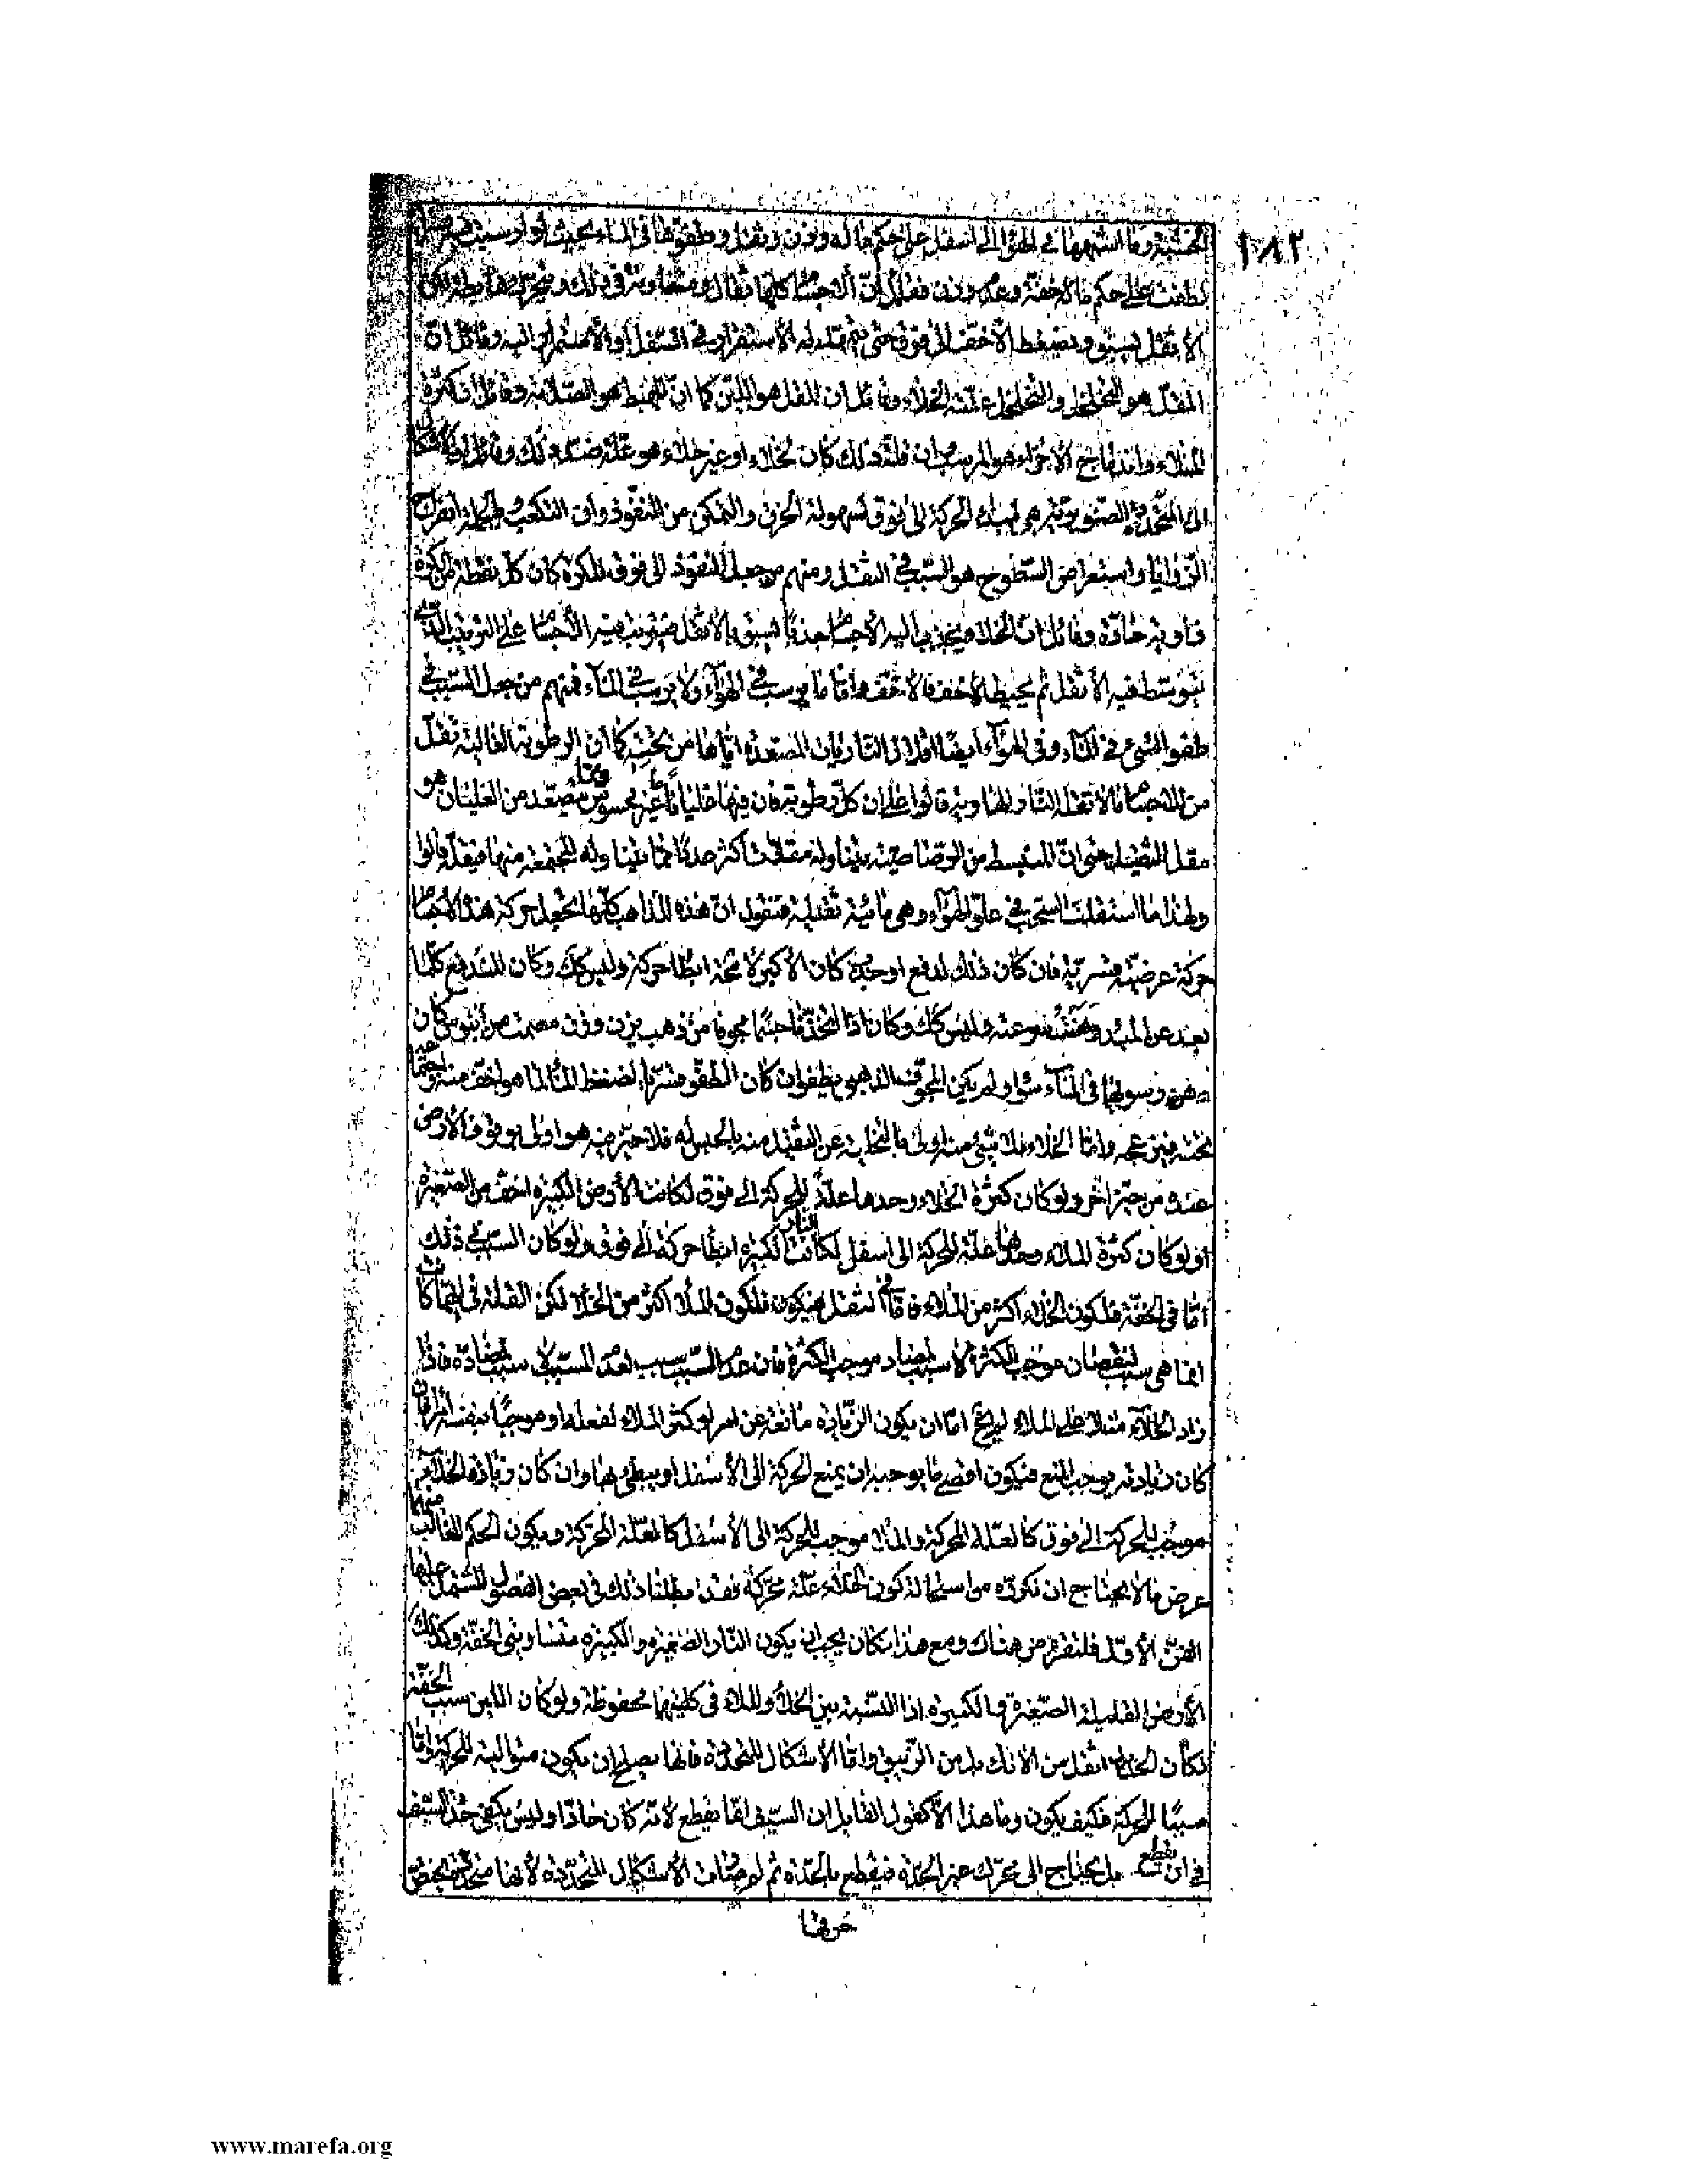 ١٨٢
الخشبية وما اشبهها في الهواء الى اسفل على حكم ما له وزن وثقل وطفوها في الماء بحيث لو ارسبت
لطفت على حكم ما له خفة وعدم وزن فقائل ان الاجسام كلها ثقال ومتفاوتة في ذلك
الاثقل يسبق ويضغط الاخف الى فوق حتى يتمهد له الاستقرار في السفل او وقائل ان
المقل هو التخلخل والتخلخل علته الخلاء وقائل ان المقل هو اللين كما ان المهبط هو الصلابة وقائل ان كثرة
الملاء واندماج الاجزاء هو المرسب وان قلة ذلك كان لخلاء او غير خلاء هو علة ضد ذلك وقائل ان الاشكال
المتحددة الصنوبرية هي مبدء الحركة الى فوق لسهولة الخرق والتمكن من النفوذ وان التكعب وانفراج
الزوايا واستعراض السطوح هو السبب في الثقل ومنهم من جعل النفوذ الى فوق للكرة كان كل نقطة من الكرة
زاوية حادة وقائل ان الخلاء يجذب اليه الاجسام جذبا يسبق بالاثقل فيترتب فيه الاجسام على الترتيب الذي
يتوسط فيه الاثقل ثم يحيط الاخف فالاخف واما ما يرسب في الهواء ولا يرسب في الماء فمنهم من جعل السبب في
طفو الشيء في الماء وفي الهواء ايضا اقلال الناريات المتصعدة اياها من تحت كما ان الرطوبة الغالية تقل
من الاجسام ما لا تقله الغير قالوا على ان كل رطوبة فان فيها غليانا ما غير محسوس يتصعد من الغليان هو
مقل الثقيل حتى ان المنبسط من الرصاص يتناوله مقلات اكثر عددا مما يتناوله المجتمعة منها فيقله قالوا
ولهذا ما استقلت السحب في علو الهواء وهي مائية ثقيلة فنقول ان هذه المذاهب كلها تجعل حركة هذه الاجسام
حركة عرضية قسرية فان كان ذلك لدفع او جذب كان الاكبر لا محالة ابطأ حركة وليس كك وكان المندفع كلما
بعد عن المبدء وهن فعله عنه وليس كك وكان اذا اتخذنا جسما مجوفا من ذهب يزن وزن مصمت من آبنوس كان
رسوبها في الماء سواء ولم يكن المجوف الذهبي يطفو وان كان الطفو قسريا لضغط الماء لما هو اخف منه واجتماعه
تحته فيزعجه واما الخلاء فلا شيء منه اولى بالتخلية عن الثقيل منه بالحبس له فلا حيز منه هو اولى بوقوف الارض
عنده من حيز آخر ولو كان كثرة الخلاء وحدها علة للحركة الى فوق لكانت الارض الكبيرة اخف من الصغيرة
او لو كان كثرة الملاء وحدها علة للحركة الى اسفل لكانت النار الكبيرة ابطأ حركة الى فوق ولو كان السبب في ذلك
اما في الخفة فلكون الخلاء اكثر من الملاء واما في الثقل فيكون لكون الملاء اكثر من الخلاء لكن القلة في ايهما كانت
انما هي سبب لنقصان موجب الكثرة لا سبب لمضاد موجب الكثرة فان عدم السبب سبب لعدم المسبب لا سبب لمضاده فاذا
زاد الخلاء مثلا على الملاء لم يخل اما ان يكون الزيادة مانعة عن امر لو كثر الملاء لفعله او موجبا بنفسه امرا فان
كان زيادته يوجب المنع فيكون اقصى ما يوجبه ان يمنع الحركة الى الاسفل او يبطئ بها وان كان زيادة الخلاء
موجب للحركة الى فوق كالعلة المحركة والملاء موجب للحركة الى الاسفل كالعلة المحركة ويكون الحكم للغالب منهما
عرض ما لا يحتاج ان نكرره من استحالة كون الخلاء علة محركة فقد ابطلنا ذلك في بعض الفصول المشتمل عليها
الفن الاول فلتقرر من هناك ومع هذا فكان يجب ان يكون النار الصغيرة والكبيرة متساويتي الخفة وكذلك
الارض القليلة الصغيرة والكبيرة اذا النسبة بين الخلاء والملاء في كليتهما محفوظة ولو كان اللين سبب الخفة
لكان الحديد اثقل من الانك بل من الزيبق واما الاشكال المتحددة فانها يصلح ان يكون مواتية للحركة واما
سببا للحركة فكيف يكون وما هذا الا كقول القايل ان السيف انما يقطع لانه كان حادا وليس يكفي حد السيف
في ان يقطع بل يحتاج الى محرك غير الحدة فيقطع بالحدة ثم لم صارت الاشكال المتحددة لانها متحددة يختص
حركتها
www.marefa.org